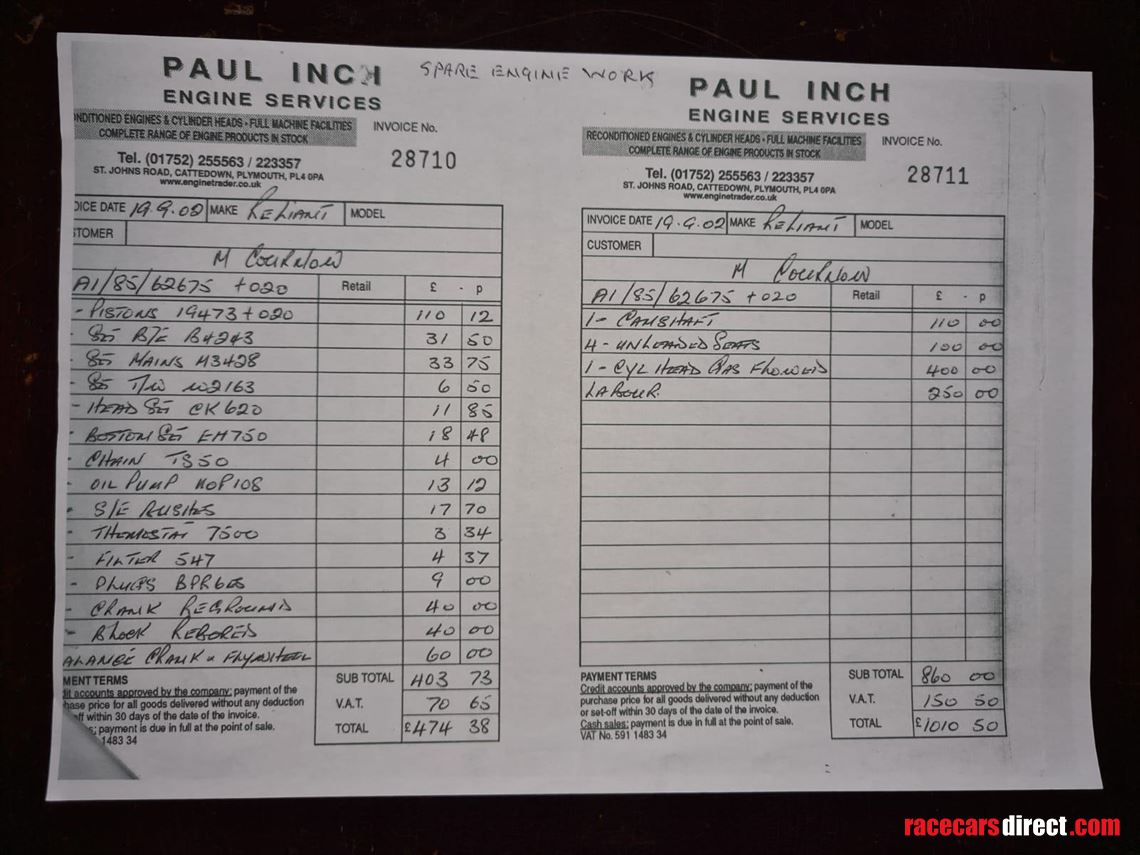 SPARE ENGINE WORK
PAUL INCH
ENGINE SERVICES
ONDITIONED ENGINES & CYLINDER HEADS - FULL MACHINE FACILITIES
COMPLETE RANGE OF ENGINE PRODUCTS IN STOCK
INVOICE No.
28710
Tel. (01752) 255563 / 223357
ST. JOHNS ROAD, CATTEDOWN, PLYMOUTH, PL4 0PA
www.enginetrader.co.uk
OICE DATE 19.9.02 MAKE RELIANT MODEL
STOMER
M COURNOW
A1/85/62675 +020 Retail £ - p
- PISTONS 19473+020 110 12
- SET B/E B4243 31 50
- SET MAINS M3428 33 75
- SET T/W W2163 6 50
- HEAD SET CK620 11 85
- BOTTOM SET EH750 18 48
- CHAIN TS50 4 00
OIL PUMP HOP108 13 12
- S/E BUSHES 17 70
- THEMOSTAT 7500 3 34
- FILTER 547 4 37
- PLUGS BPR6ES 9 00
- CRANK REGROUND 40 00
- BLOCK REBORED 40 00
ALANCE CRANK & FLYWHEEL 60 00
SUB TOTAL 403 73
V.A.T. 70 65
TOTAL £474 38
MENT TERMS
dit accounts approved by the company: payment of the
hase price for all goods delivered without any deduction
off within 30 days of the date of the invoice.
s: payment is due in full at the point of sale.
1 1483 34
PAUL INCH
ENGINE SERVICES
RECONDITIONED ENGINES & CYLINDER HEADS - FULL MACHINE FACILITIES
COMPLETE RANGE OF ENGINE PRODUCTS IN STOCK
INVOICE No.
28711
Tel. (01752) 255563 / 223357
ST. JOHNS ROAD, CATTEDOWN, PLYMOUTH, PL4 0PA
www.enginetrader.co.uk
INVOICE DATE 19.9.02 MAKE RELIANT MODEL
CUSTOMER
M COURNOW
A1/85/62675 +020 Retail £ - p
1 - CAMSHAFT 110 00
4 - UNLEADED SEATS 100 00
1 - CYL HEAD GAS FLOWED 400 00
LABOUR. 250 00
SUB TOTAL 860 00
V.A.T. 150 50
TOTAL £1010 50
PAYMENT TERMS
Credit accounts approved by the company: payment of the
purchase price for all goods delivered without any deduction
or set-off within 30 days of the date of the invoice.
Cash sales: payment is due in full at the point of sale.
VAT No. 591 1483 34
racecarsdirect.com